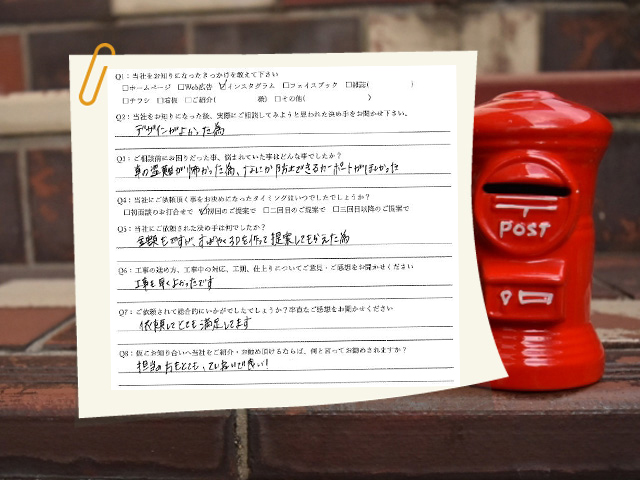 Q1：当社をお知りになったきっかけを教えて下さい
□ホームページ □Web広告 ☑インスタグラム □フェイスブック □雑誌( )
□チラシ □看板 □ご紹介( 様) □その他( )
Q2：当社をお知りになった後、実際にご相談してみようと思われた決め手をお聞かせ下さい。
デザインがよかった為
Q3：ご相談前にお困りだった事、悩まれていた事はどんな事でしたか？
車の盗難が怖かった為、なにか防止できるカーポートがほしかった
Q4：当社にご依頼頂く事をお決めになったタイミングはいつでしたでしょうか？
□初面談のお打合せで ☑初回のご提案で □二回目のご提案で □三回目以降のご提案で
Q5：当社にご依頼された決め手は何でしたか？
金額もですが、すばやく3Dを作って提案してもらえた為
Q6：工事の進め方、工事中の対応、工期、仕上りについてご意見・ご感想をお聞かせください
工事も早くよかったです
Q7：ご依頼されて総合的にいかがでしたでしょうか？率直なご感想をお聞かせください
依頼してとても満足してます
Q8：仮にお知り合いへ当社をご紹介・お勧め頂けるならば、何と言ってお勧めされますか？
担当の方もとても、ていねいで良い！
POST